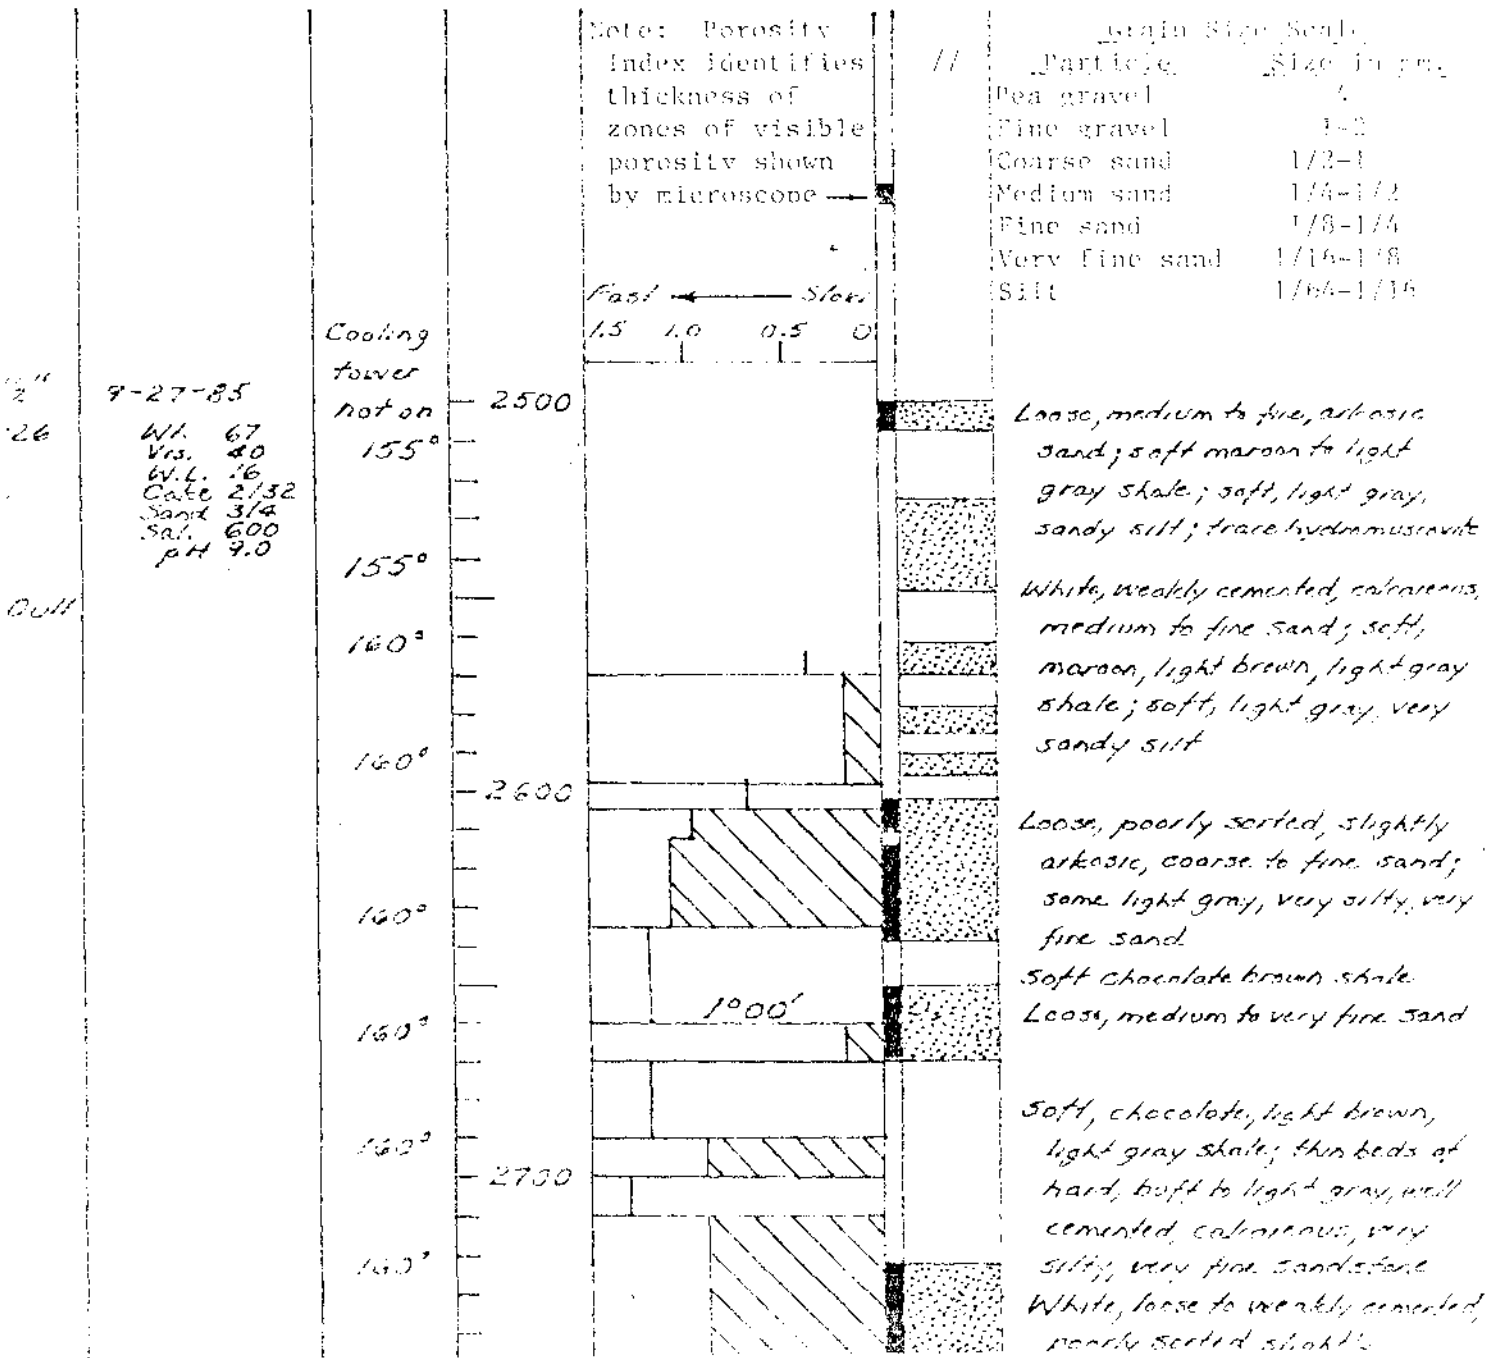 Note: Porosity
Index identifies
thickness of
zones of visible
porosity shown
by microscope
//
Grain Size Scale
Particle Size in
Pea gravel 4
Fine gravel 1-2
Coarse sand 1/2-1
Medium sand 1/4-1/2
Fine sand 1/8-1/4
Very fine sand 1/16-1/8
Silt 1/64-1/16
Fast Slow
1.5 1.0 0.5 0
Cooling
tower
not on
9-27-85
Wt. 67
Vis. 40
W.L. 16
Cake 2/32
Sand 3/4
Sal. 600
pH 9.0
155°
155°
160°
160°
160°
160°
160°
160°
2500
2600
2700
1°00'
Loose, medium to fine, arkosic
sand; soft maroon to light
gray shale; soft, light gray,
sandy silt; trace hydromuscovite
White, weakly cemented, calcareous,
medium to fine sand; soft,
maroon, light brown, light gray
shale; soft, light gray, very
sandy silt
Loose, poorly sorted, slightly
arkosic, coarse to fine sand;
some light gray, very silty, very
fine sand
Soft chocolate brown shale
Loose, medium to very fine sand
Soft, chocolate, light brown,
light gray shale; thin beds of
hard, buff to light gray, well
cemented, calcareous, very
silty, very fine sandstone
White, loose to weakly cemented,
poorly sorted slightly